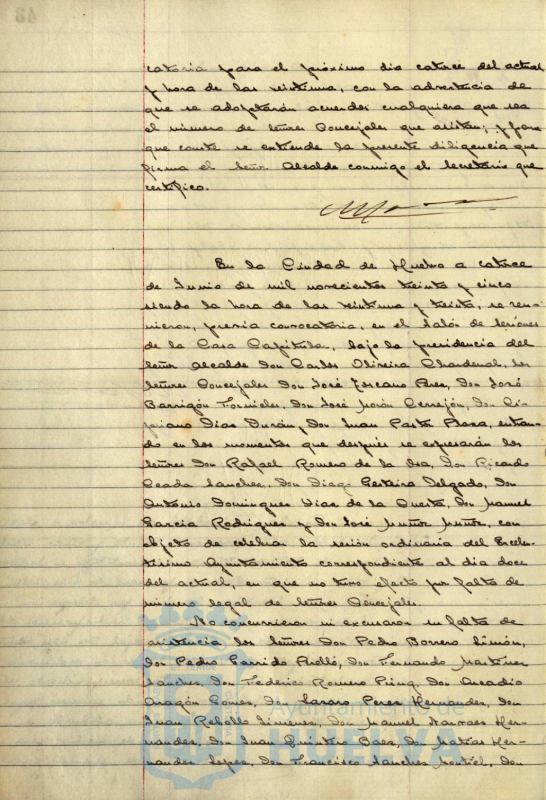 catoria para el próximo dia catorce del actual
y hora de las veintiuna, con la advertencia de
que se adoptarán acuerdos cualquiera que sea
el número de señores Concejales que asistan; y para
que conste se extiende la presente diligencia que
firma el Señor Alcalde conmigo el Secretario que
certifico.
En la Ciudad de Huelva a catorce
de Junio de mil novecientos treinta y cinco
siendo la hora de las veintiuna y treinta, se reu-
nieron, previa convocatoria, en el Salón de Sesiones
de la Casa Capitular, bajo la presidencia del
Señor Alcalde Don Carlos Oliveira Chardenal, los
Señores Concejales Don José Toscano Perez, Don José
Barrigón Fornieles, Don José Morón Cerrejón, Don Ci-
priano Dias Durán, Don Juan Pastr Baza, entran-
do en los momentos que después se expresarán los
señores Don Rafael Romero de la Osa, Don Ricardo
Ceada Sanchez, Don Diego Delgado, Don
Antonio Dominguez Dias de la Cuesta, Don Manuel
Garcia Rodriguez y Don José Muñoz Muñoz, con
objeto de celebrar la sesión ordinaria del Excelen-
tisimo Ayuntamiento correspondiente al dia doce
del actual, en que no tuvo efecto por falta de
número legal de Señores Concejales.
No concurrieron ni excusaron su falta de
asistencia los Señores Don Pedro Borrero Limón,
Don Pedro Garrido Perelló, Don Fernando Martinez
Sanchez, Don Federico Romero, Don Arcadio
Aragón Gomez, Don Lazaro Perez Hernandez, Don
Juan Rebollo Jimenez, Don Manuel Narvaez Her-
nandez, Don Juan Quintero Baez, Don Matias Her-
nandez Lopez, Don Francisco Sanchez Montiel, Don
Ayuntamiento de
HUELVA